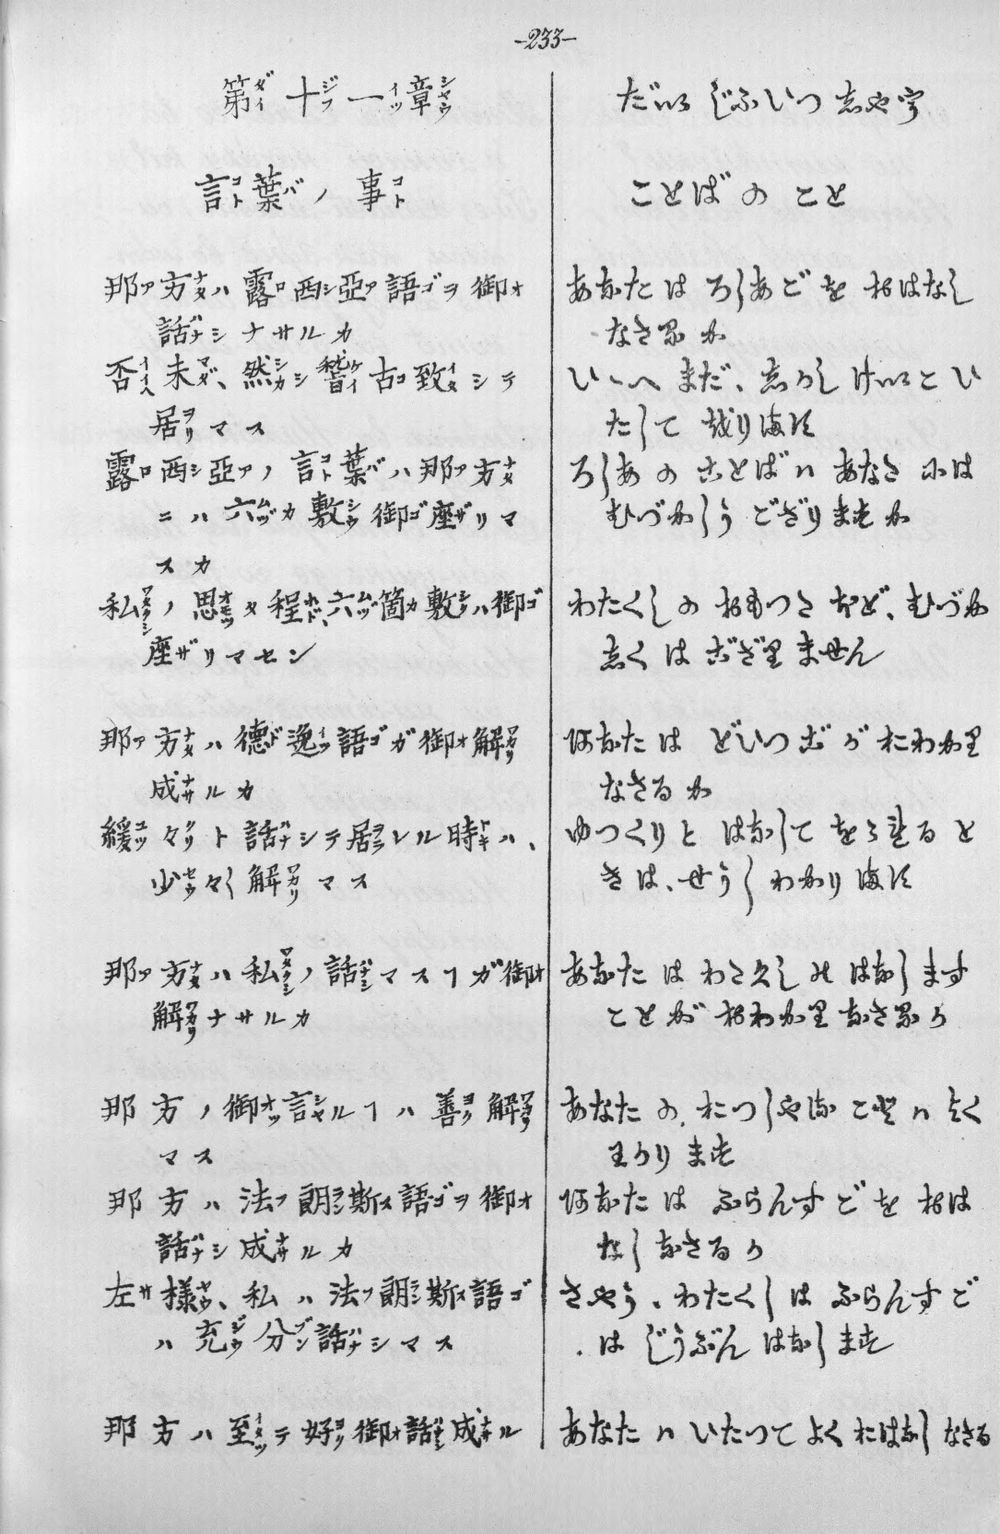 -233-
第十一章
言葉ノ事
那方ハ露西亞語ヲ御
話シナサルカ
否未、然シ稽古致シテ
居リマス
露西亞ノ言葉ハ那方
ニハ六カ敷御座リマ
スカ
私ノ思タ程六箇敷ハ御
座リマセン
那方ハ德逸語ガ御解
成ルカ
緩々ト話シテ居レル時ハ、
少々解マス
那方ハ私ノ話マスヿガ御
解ナサルカ
那方ノ御言ルヿハ善解
マス
那方ハ法朗斯語ヲ御
話シ成ルカ
左樣、私ハ法朗斯語
ハ充分話シマス
那方ハ至テ好御話成ル
だいじふいつしやう
ことばのこと
あなたはろしあごをおはなし
なさるか
いゝへまだ、しかしけいこい
たしてをります
ろしあのことばハあなたには
むづかしうござりますか
わたくしのおもつたほど、むづか
しくはござりません
あなたはどいつごがおわかり
なさるか
ゆつくりとはなしてをられると
きは、せう〱わかります
あなたはわたくしのはなします
ことがおわかりなさるか
あなたの、おつしやることハよく
わかります
あなたはふらんすごをおは
なしなさるか
さやう、わたくしはふらんすご
はじうぶんはなします
あなたハいたつてよくおはなしなさる